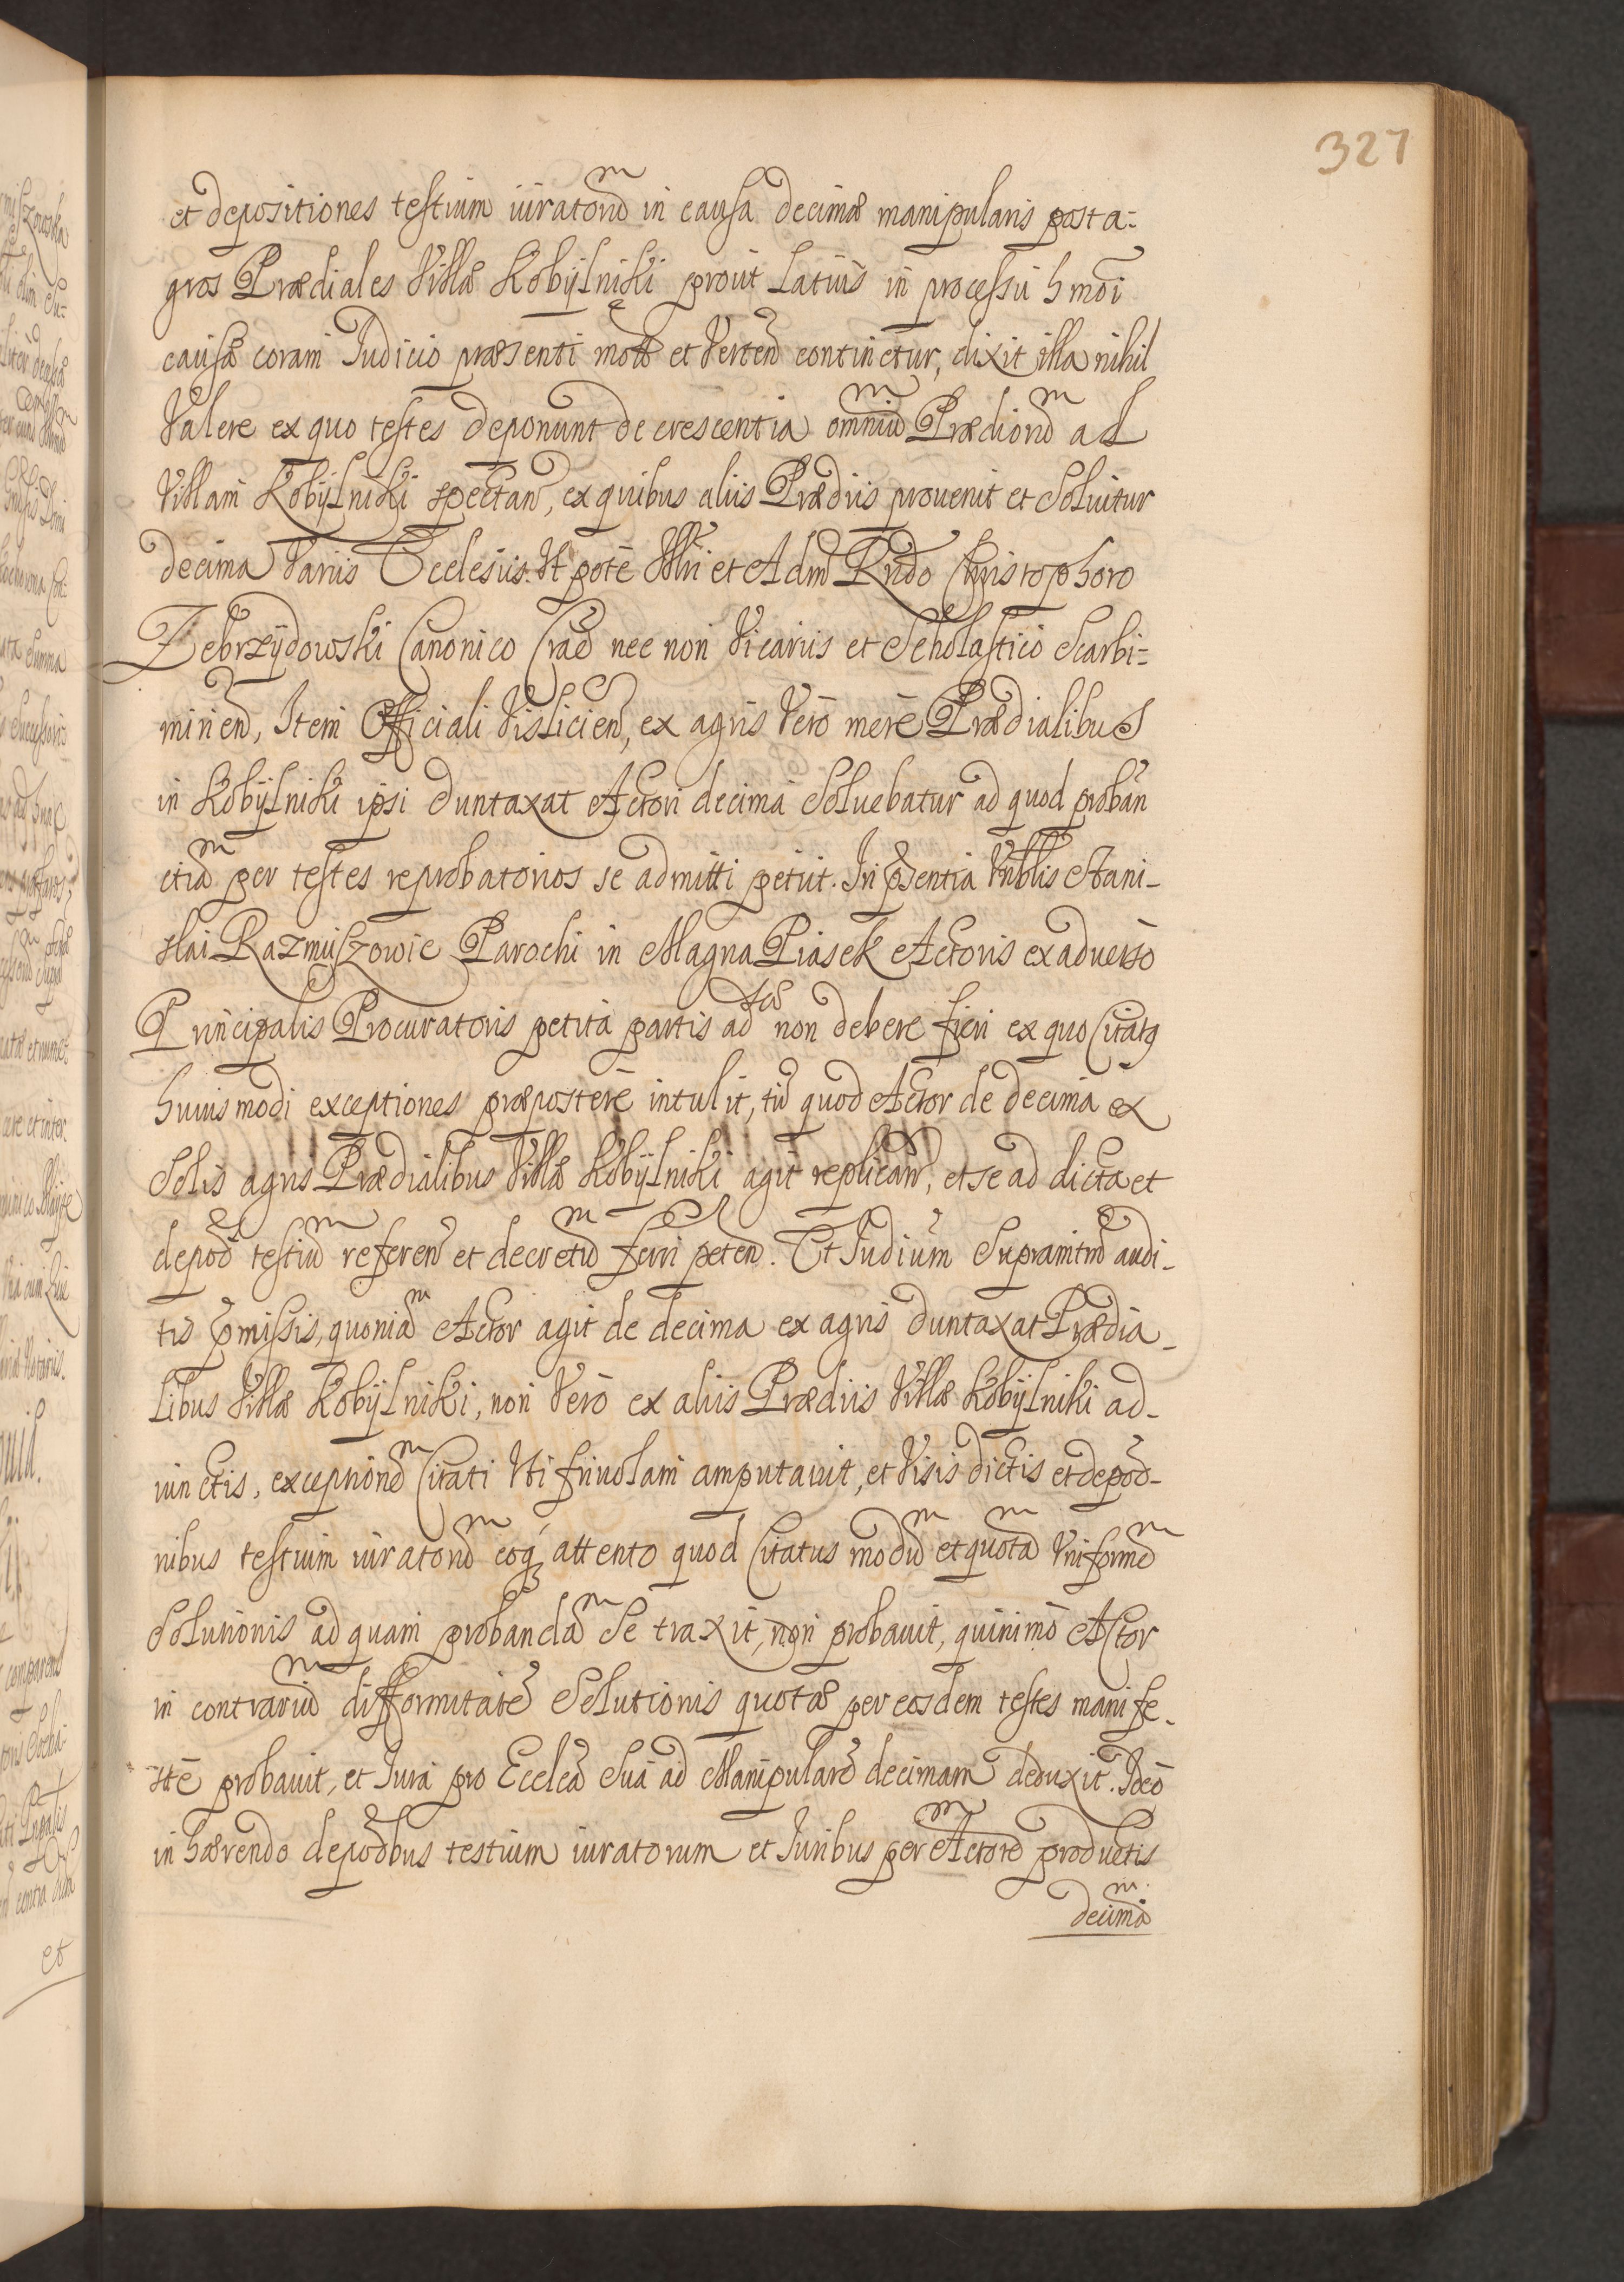 327
et depositiones testium iuratorum in causa decimæ manipularis post a=
gros Prædiales Villæ Kobÿlniki prout latius in processu hmoi
causæ coram Iudicio præsenti motæ et Verten continetur, dixit illa nihil
Valere ex quo testes deponunt de crescentia omnium Prædiorum ad
Villam Kobÿlniki spectan, ex quibus aliis Prædiis prouenit et Soluitur
decima Variis Ecclesiis. Ut pote Illri et Adm Rndo Christophoro
Zebrzÿdowski Canonico Crac nec non Vicariis et Scholastico Scarbi=
mirien, Item Officiali Vislicien, ex agris Vero mere Prædialibus
in Kobÿlniki ipsi duntaxat Actori decima Soluebatur ad quod proban
etiam per testes reprobatorios se admitti petiit. In pñtia Vnblis Stani-
slai Razmuszowic Parochi in Magna Piasek Actoris ex aduerso
Principalis Procuratoris petita partis ad non debere fieri ex quo Citatq
huiusmodi exceptiones præpostere intulit, tu quod Actor de decima ex
Solis agris Prædialibus Villæ Kobÿlniki agit replican, et se ad dicta et
depoes testium referen et decretum ferri peten. Et Iudium Supranmtm audi-
tis pmissis, quoniam Actor agit de decima ex agris duntaxat Prædia-
libus Villæ Kobÿlniki, non Vero ex aliis Prædiis Villæ Kobÿlniki ad-
iunctis, exceptionem Citati Vti friuolam amputauit, et Visis dictis et depoo-
nibus testium iuratorum eoq attento quod Citatus modum et quotam Vniformem
Solutionis ad quam probandam Se traxit, non probauit, quinimo Actor
in contrarium difformitatem Solutionis quotæ per eosdem testes manife-
ste probauit, et Iura pro Ecclea Sua ad Manipularem decimam deduxit. Ideo
inhærendo depoobus testium iuratorum et Iuribus per Actorem productis
decimam